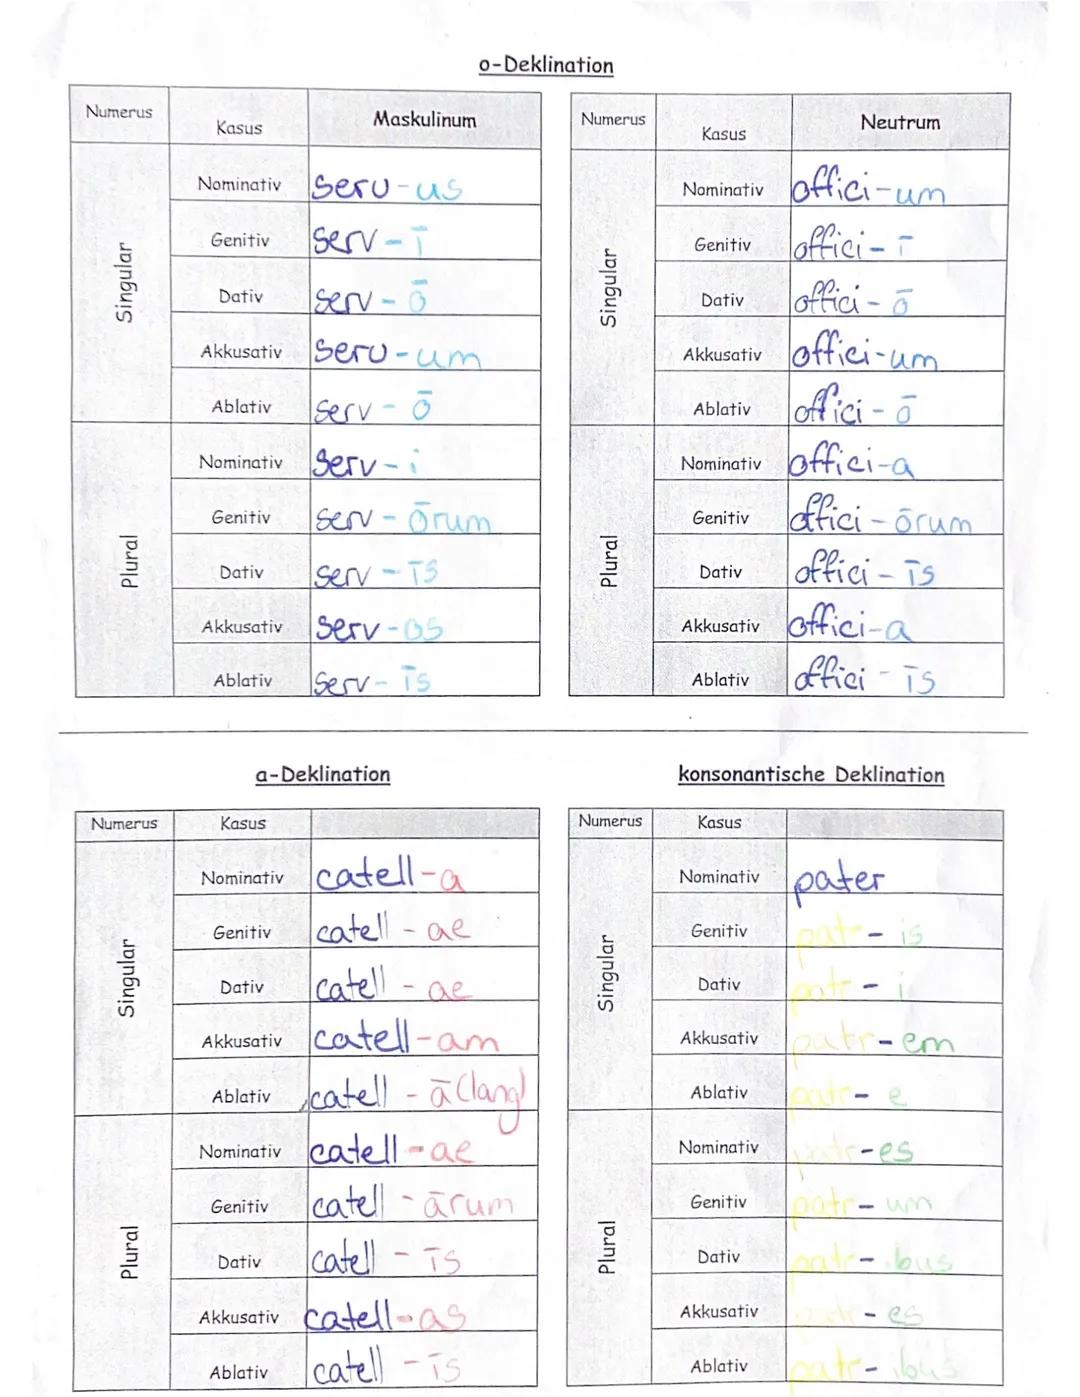 o-Deklination
Numerus Kasus Maskulinum
Singular
Nominativ serv-us
Genitiv serv-ī
Dativ serv-ō
Akkusativ serv-um
Ablativ serv-ō
Plural
Nominativ serv-i
Genitiv serv-ōrum
Dativ serv-īs
Akkusativ serv-os
Ablativ serv-īs
Numerus Kasus Neutrum
Singular
Nominativ offici-um
Genitiv offici-ī
Dativ offici-ō
Akkusativ offici-um
Ablativ offici-ō
Plural
Nominativ offici-a
Genitiv offici-ōrum
Dativ offici-īs
Akkusativ offici-a
Ablativ offici-īs
a-Deklination
Numerus Kasus
Singular
Nominativ catell-a
Genitiv catell-ae
Dativ catell-ae
Akkusativ catell-am
Ablativ catell-ā (lang)
Plural
Nominativ catell-ae
Genitiv catell-ārum
Dativ catell-īs
Akkusativ catell-as
Ablativ catell-īs
konsonantische Deklination
Numerus Kasus
Singular
Nominativ pater
Genitiv patr-is
Dativ patr-i
Akkusativ patr-em
Ablativ patr-e
Plural
Nominativ patr-es
Genitiv patr-um
Dativ patr-ibus
Akkusativ patr-es
Ablativ patr-ibus